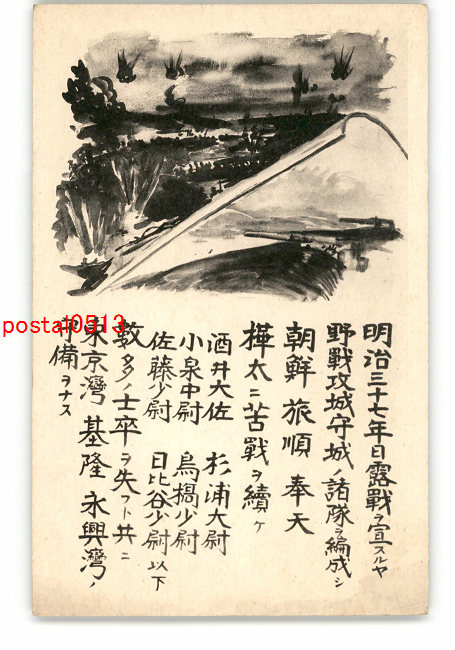 明治三十七年日露戰ヲ宣スルヤ
野戰攻城守城ノ諸隊ヲ編成シ
朝鮮 旅順 奉天
樺太ニ苦戰ヲ續ケ
酒井大佐 杉浦大尉
小泉中尉 烏搗少尉
佐藤少尉 日比谷少尉以下
数多ノ士卒ヲ失フト共ニ
東京灣 基隆 永興灣ノ
守備ヲナス
postal0513